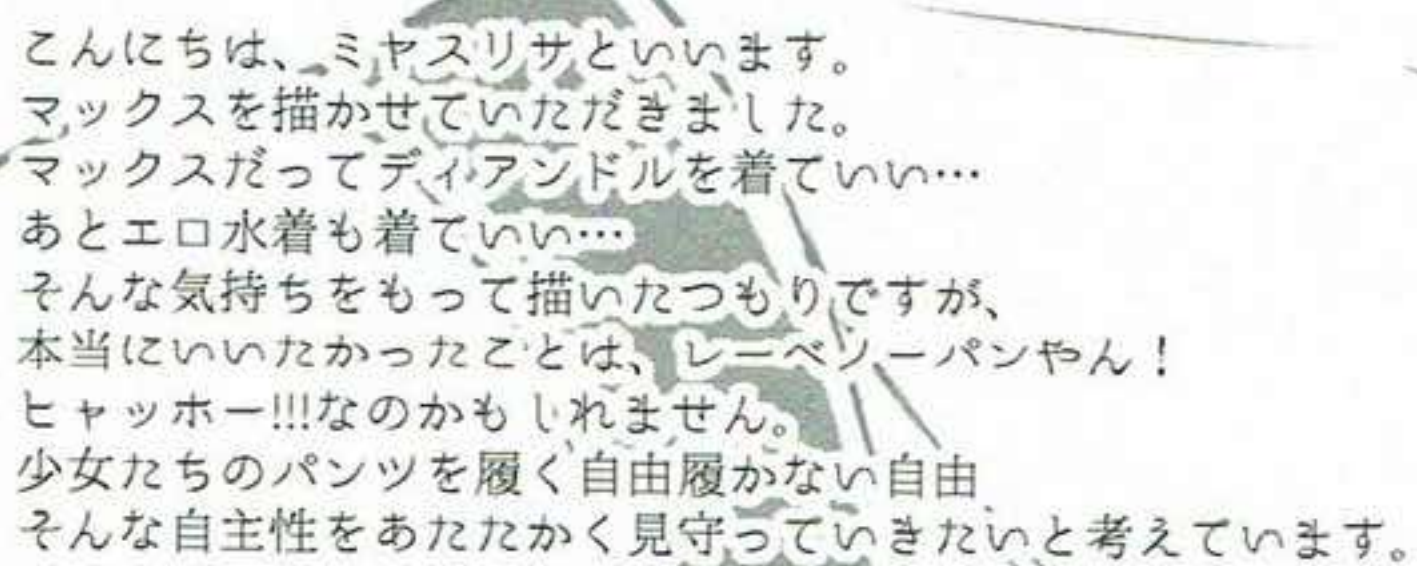 こんにちは、ミヤスリサといいます。
マックスを描かせていただきました。
マックスだってディアンドルを着ていい…
あとエロ水着も着ていい…
そんな気持ちをもって描いたつもりですが、
本当にいいたかったことは、レーベノーパンやん！
ヒャッホー!!!なのかもしれません。
少女たちのパンツを履く自由履かない自由
そんな自主性をあたたかく見守っていきたいと考えています。